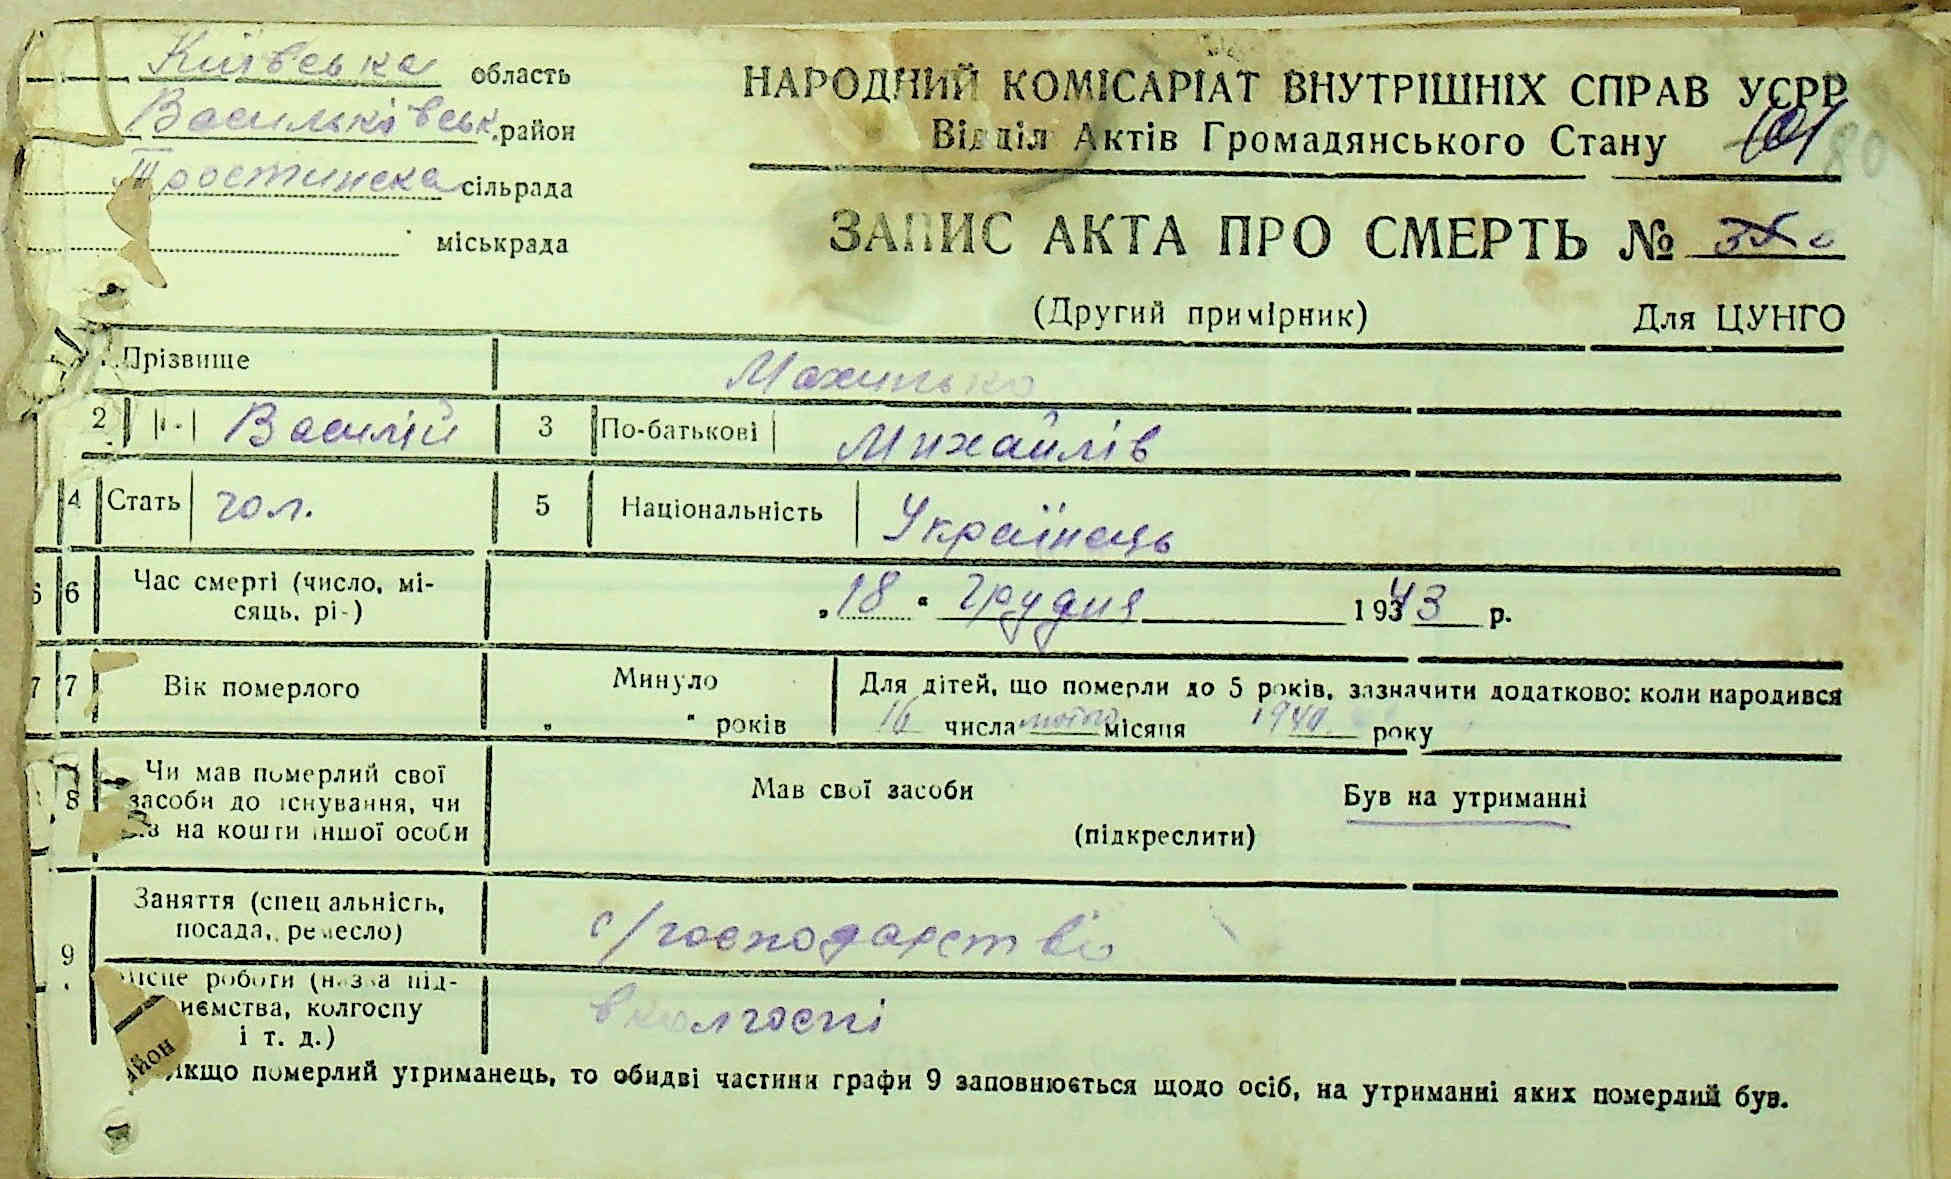 Київська область
Васильківськ. район
Тростинска сільрада
міськрада
НАРОДНИЙ КОМІСАРІАТ ВНУТРІШНІХ СПРАВ УСРР
Відділ Актів Громадянського Стану
80
ЗАПИС АКТА ПРО СМЕРТЬ №
(Другий примірник) Для ЦУНГО
Прізвище Махинько
2 Василій 3 По-батькові Михайлів
4 Стать чол. 5 Національність Українець
6 6 Час смерті (число, мі-
сяць, рі-) „18“ Грудня 1943 р.
7 7 Вік померлого Минуло
„ “ років
Для дітей, що померли до 5 років, зазначити додатково: коли народився
16 числа лютого місяця 1940 року
8 Чи мав померлий свої
засоби до існування, чи
на кошти іншої особи
Мав свої засоби Був на утриманні
(підкреслити)
9 Заняття (спеціальність,
посада, ремесло) с/господарство
місце роботи (назва під-
приємства, колгоспу
і т. д.) в колгоспі
район
Якщо померлий утриманець, то обидві частини графи 9 заповнюється щодо осіб, на утриманні яких померлий був.